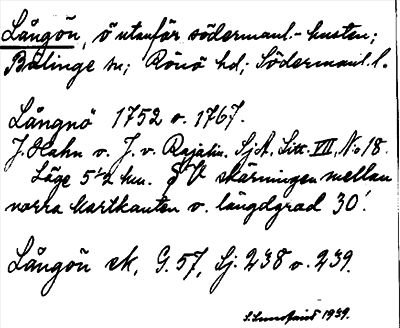 Långön, ö utanför södermanl.-kusten;
Bälinge sn; Rönö hd; Södermanl. l.
Långnö 1752 o. 1767.
J. Hahn o. J. v. Rajalin. Sj.A. Litt. VII, No 18.
Läge 5 1/2 km. V skärningen mellan
norra kartkanten o. längdgrad 30'.
Långön ek, G. 57, Sj. 238 o. 239.
1939.